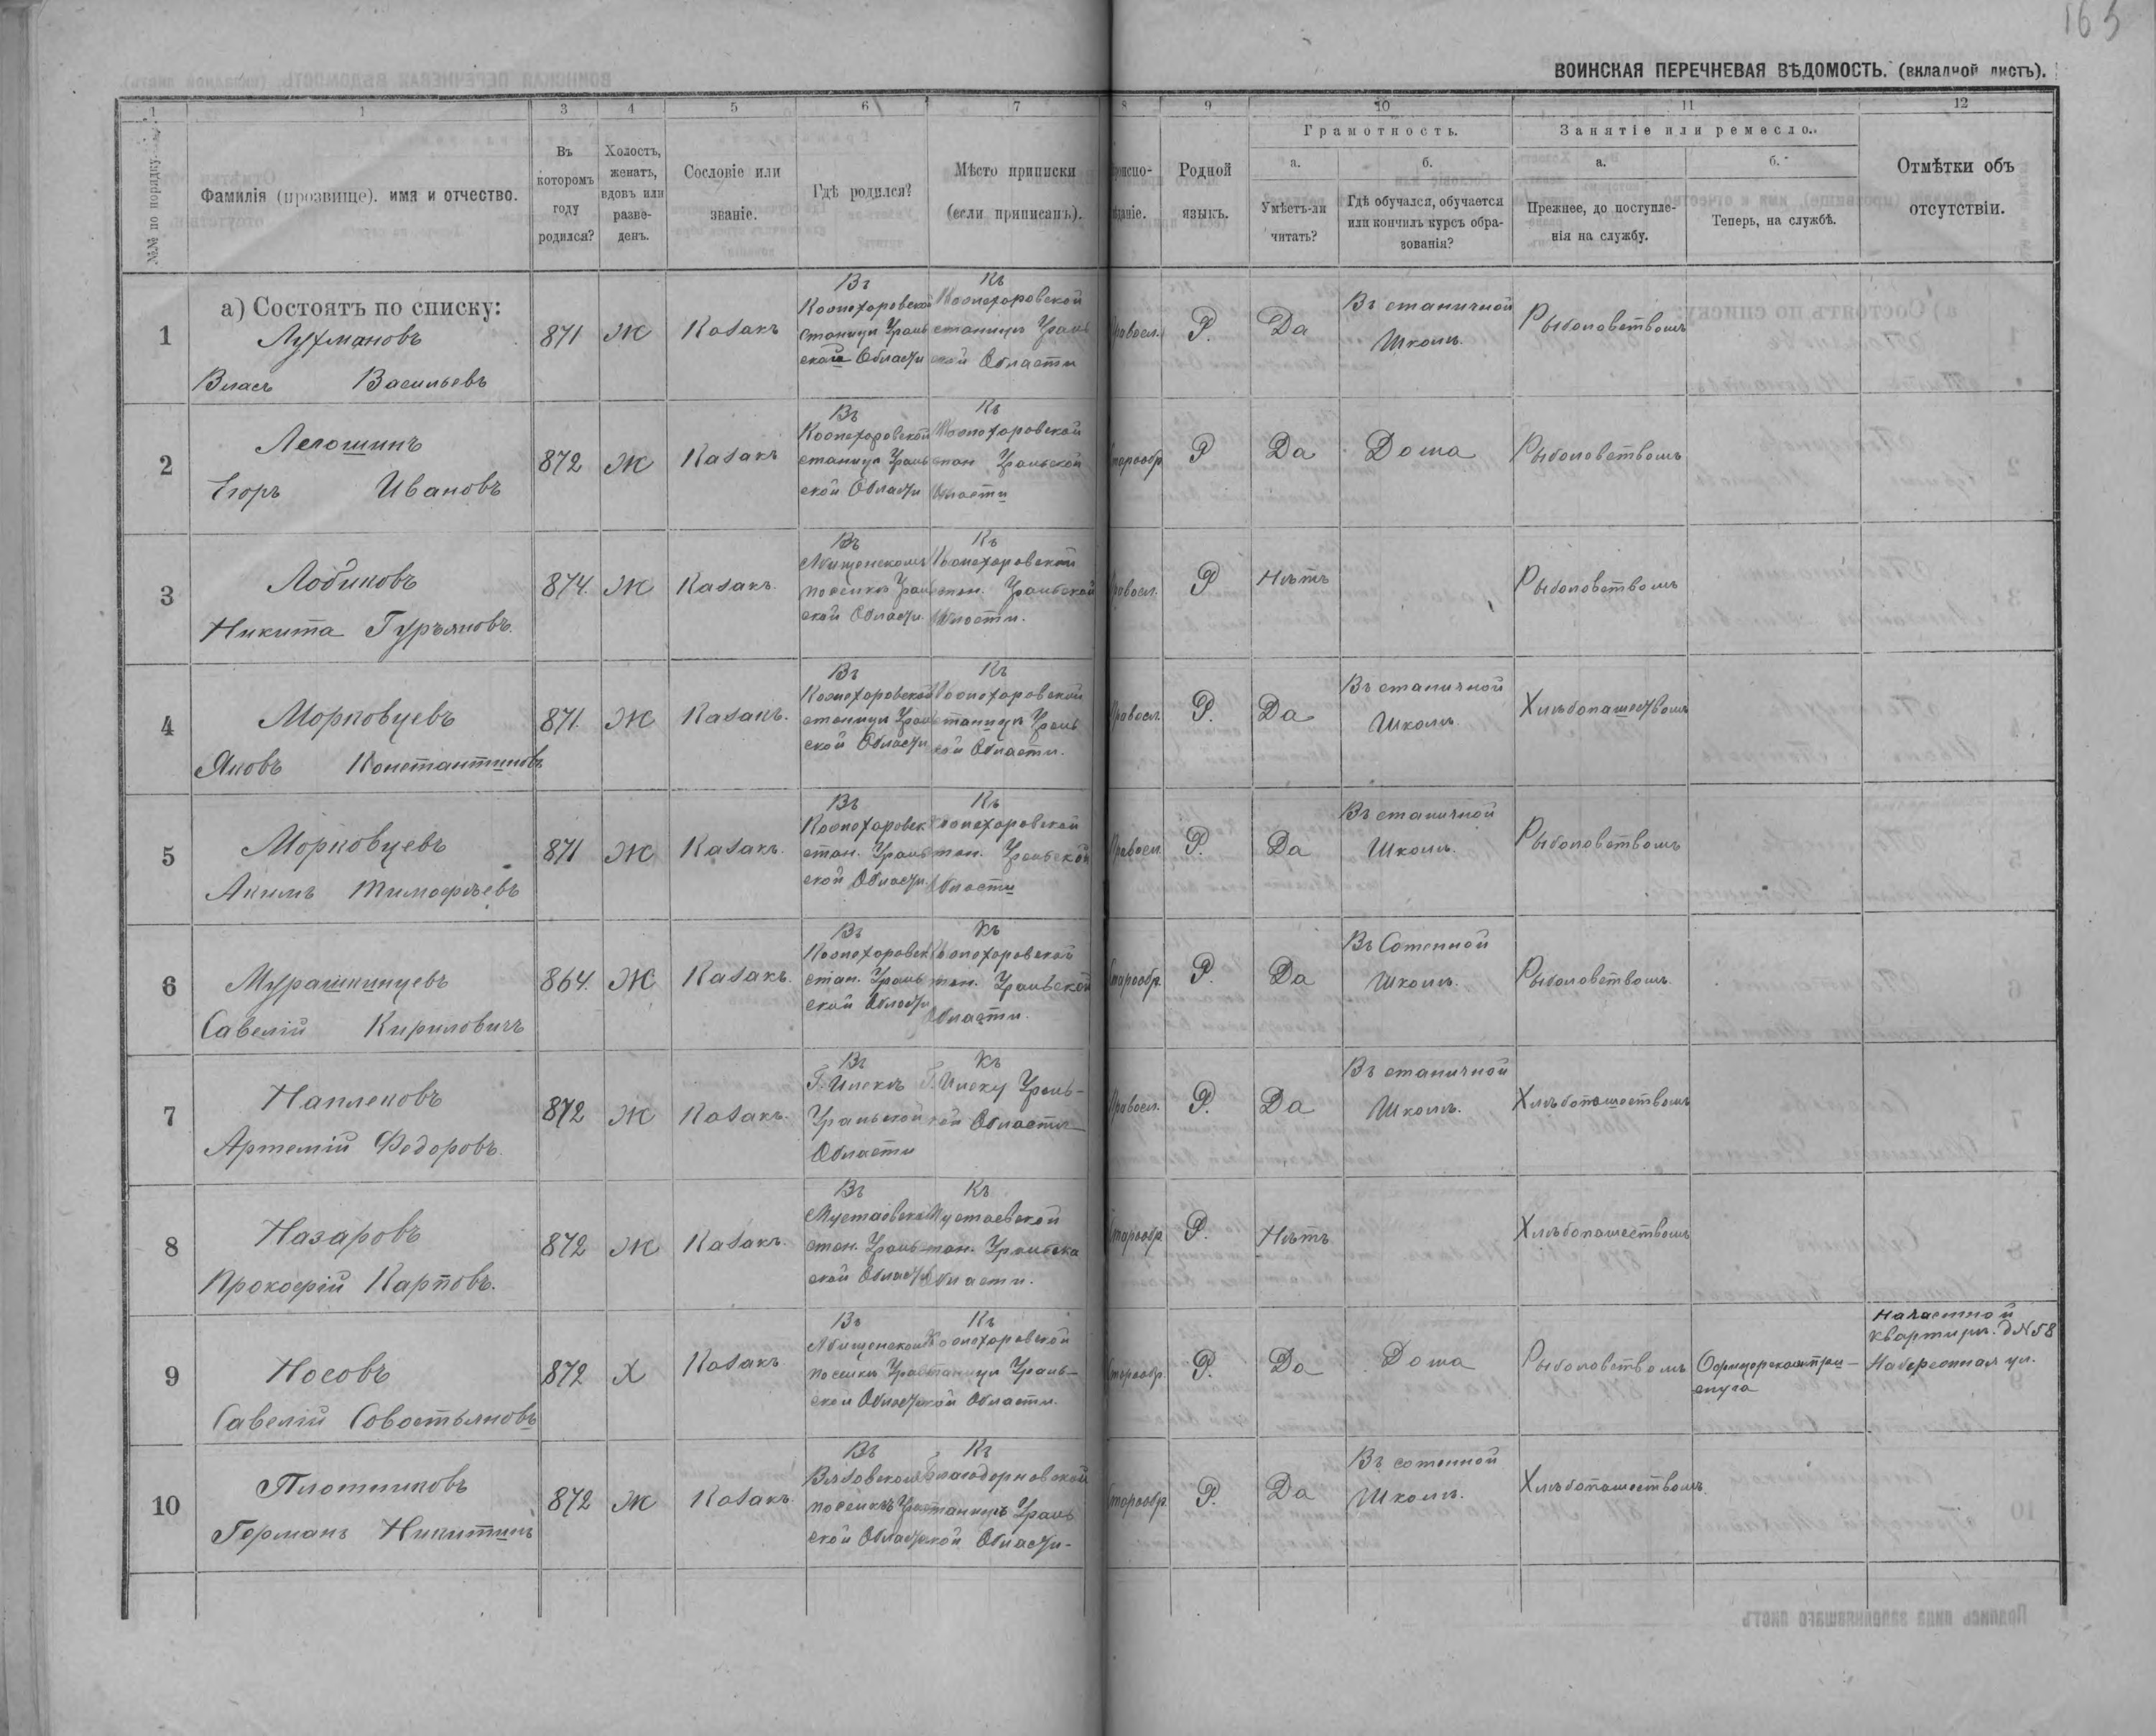 165
ВОИНСКАЯ ПЕРЕЧНЕВАЯ ВѢДОМОСТЬ. (вкладной листъ).
1 1 3 4 5 6 7 8 9 10 11 12
№№ по порядку.
Фамилія (прозвище), имя и отчество.
Въ которомъ году родился?
Холостъ, женатъ, вдовъ или разве-
денъ.
Сословіе или званіе.
Гдѣ родился?
Мѣсто приписки (если приписанъ).
Родной языкъ.
Грамотность.
а. Умѣетъ-ли читать?
б. Гдѣ обучался, обучается или кончилъ курсъ обра-
зованія?
Занятіе или ремесло.
а. Прежнее, до поступле-
нія на службу.
б. Теперь, на службѣ.
Отмѣтки объ отсутствіи.
а) Состоятъ по списку:
1 Лухмановъ
Власъ Васильевъ
871 Ж Казакъ
Въ
станицѣ Ураль
ской Области
Къ
станицѣ Ураль
ской Области
Правосл. Р. Да
Въ станичной
Школѣ.
Рыболовствомъ
2
Егоръ Ивановъ
872 Ж Казакъ
Въ
станицѣ Ураль
ской Области
Къ
стан Уральской
Области
Старообр Р Да Дома Рыболовствомъ
3 Лобиковъ
Никита Гурьяновъ.
874. Ж Казакъ.
Въ
поселкѣ Ураль
ской Области.
Къ
стан. Уральской
Области.
Правосл. Р Нѣтъ Рыболовствомъ
4 Морковцевъ
Яковъ Константиновъ
871. Ж Казакъ.
Въ
станицѣ Ураль
ской Области
Къ
станицѣ Ураль
ской Области.
Правосл. Р. Да
Въ станичной
Школѣ.
Хлѣбопашествомъ
5 Морковцевъ
Акимъ Тимофѣевъ
871 Ж Казакъ.
Въ
стан. Ураль
ской Области.
Къ
стан. Уральской
Области
Правосл. Р. Да
Въ станичной
Школѣ.
Рыболовствомъ
6 Мурашкинцевъ
Савелій Кириловичъ
864. Ж Казакъ.
Въ
стан. Ураль
ской Области
Къ
стан. Уральской
Области.
Старообр. Р. Да
Въ Сотенной
Школѣ.
Рыболовствомъ.
7 Наплековъ
Артемій Федоровъ.
872 Ж Казакъ.
Въ
Г. Илекѣ
Уральской
Области
Къ
Г. Илеку Ураль-
ской Области
Правосл. Р. Да
Въ станичной
Школѣ.
Хлѣбопашествомъ
8 Назаровъ
Прокофій Карповъ.
872 Ж Казакъ.
Въ
Мустаевской
стан. Ураль-
ской Области
Къ
Мустаевской
стан. Уральска
Области.
Старообр Р. Нѣтъ Хлѣбопашествомъ
9 Носовъ
Савелій Совостьяновъ
872 Х Казакъ
Въ
поселкѣ Ураль
ской Области
Къ
станицѣ Ураль-
ской Области.
Старообр. Р. Да Дома Рыболовствомъ
слуга
На частной
квартирѣ. д № 58
Набережная ул.
10 Плотниковъ
Германъ Никитинъ
872 Ж Казакъ.
Въ
поселкѣ Ураль
ской Области
Къ
Благодорновской
станицѣ Ураль
ской Области-
Старообр. Р. Да
Въ сотенной
Школѣ.
Хлѣбопашествомъ.